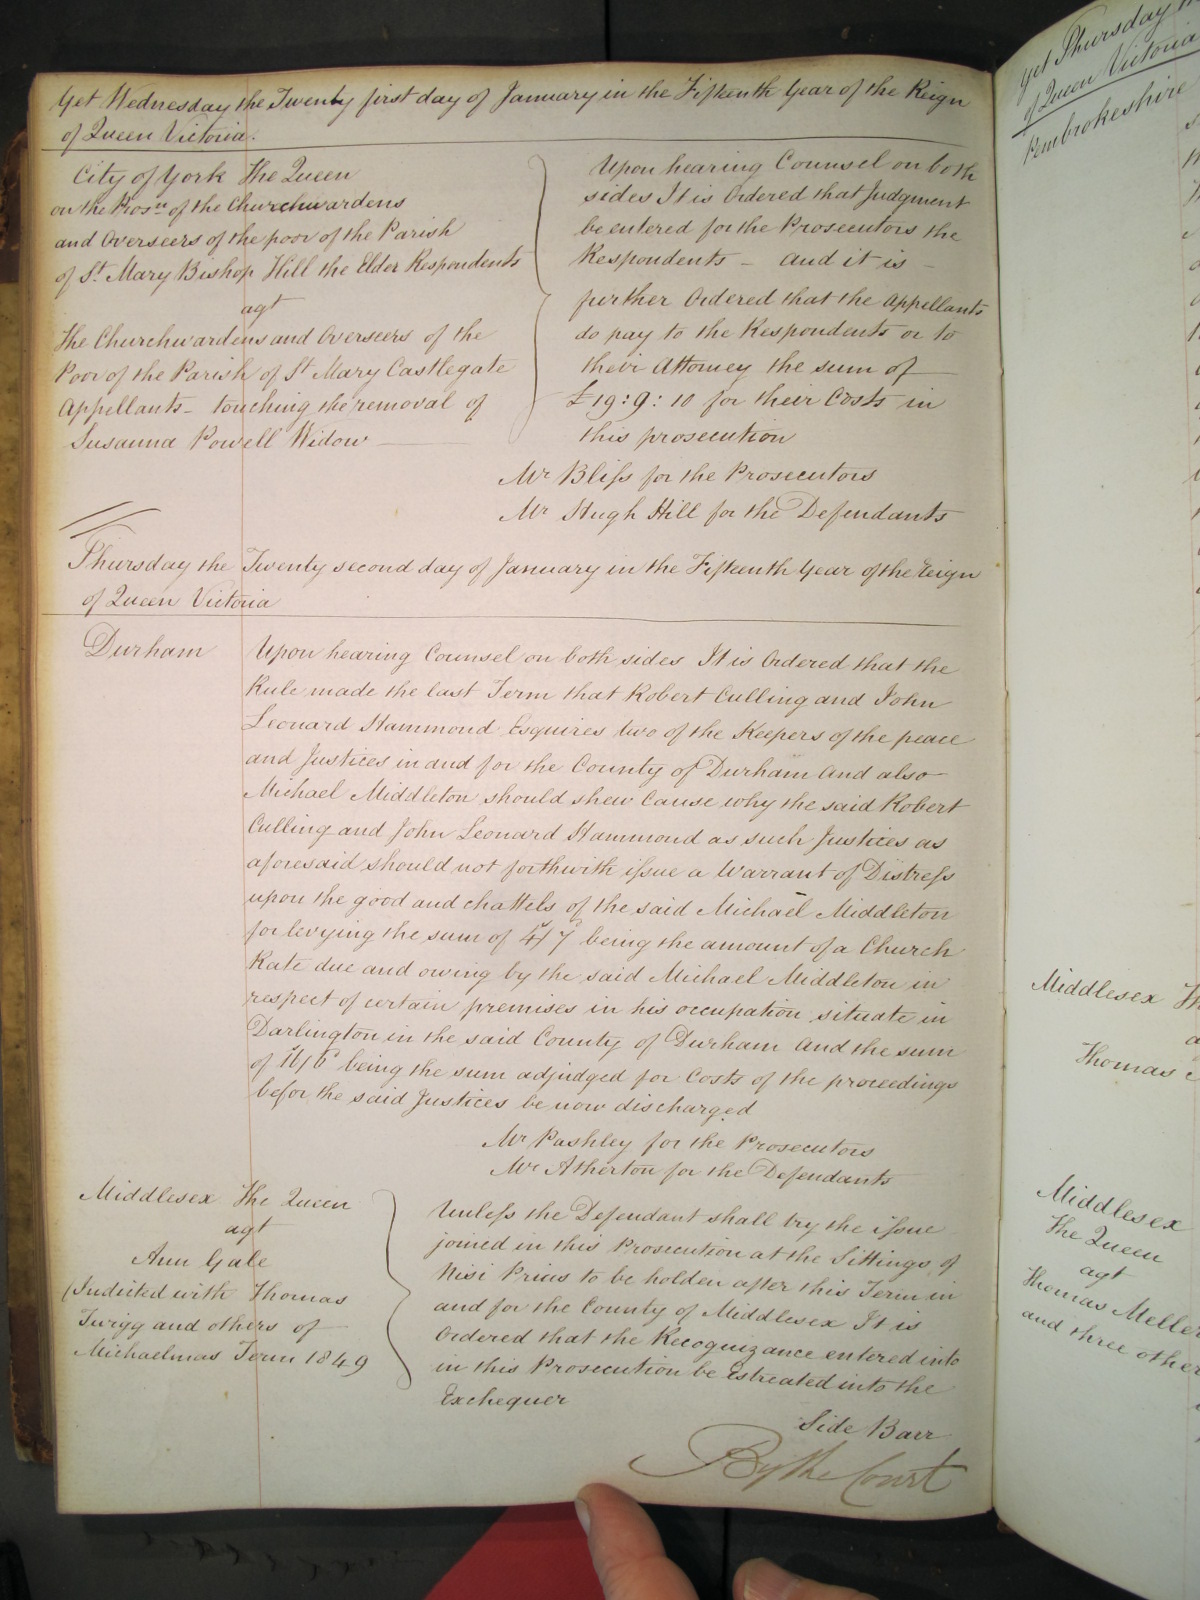 Yet Wednesday the Twenty first day of January in the Fifteenth Year of the Reign
of Queen Victoria.
City of York The Queen
on the Prosn of the Churchwardens
and Overseers of the poor of the Parish
of St. Mary Bishop Hill the Elder Respondents
agt
The Churchwardens and Overseers of the
Poor of the Parish of St Mary Castlegate
Appellants - touching the removal of
Susanna Powell Widow
Upon hearing Counsel on both
sides It is Ordered that Judgment
be entered for the Prosecutors the
Respondents - and it is -
further Ordered that the Appellants
do pay to the Respondents or to
their Attorney the sum of
£19:9:10 for their Costs in
this prosecution
Mr Bliss for the Prosecutors
Mr Hugh Hill for the Defendants
Thursday the Twenty second day of January in the Fifteenth Year of the Reign
of Queen Victoria
Durham
Upon hearing Counsel on both sides It is Ordered that the
Rule made the last Term that Robert Culling and John
Leonard Hammond Esquires two of the Keepers of the peace
and Justices in and for the County of Durham and also
Michael Middleton should shew Cause why the said Robert
Culling and John Leonard Hammond as such Justices as
aforesaid should not forthwith issue a Warrant of Distress
upon the good and chattels of the said Michael Middleton
for levying the sum of 4/7 being the amount of a Church
Rate due and owing by the said Michael Middleton in
respect of certain premises in his occupation situate in
Darlington in the said County of Durham and the sum
of 16/6 being the sum adjudged for Costs of the proceedings
befor the said Justices be now discharged
Mr Pashley for the Prosecutors
Mr Atherton for the Defendants
Middlesex The Queen
agt
Ann Gale
(Indicted with Thomas
Twigg and others of
Michaelmas Term 1849
Unless the Defendant shall try the issue
joined in this Prosecution at the Sittings of
Nisi Prius to be holden after this Term in
and for the County of Middlesex It is
Ordered that the Recognizance entered into
in this Prosecution be Estreated into the
Exchequer
Side Barr
By the Court
Yet Thursday
of Queen Victoria
Pembrokeshire
Middlesex
Thomas
Middlesex
The Queen
agt
Thomas Meller
and three other